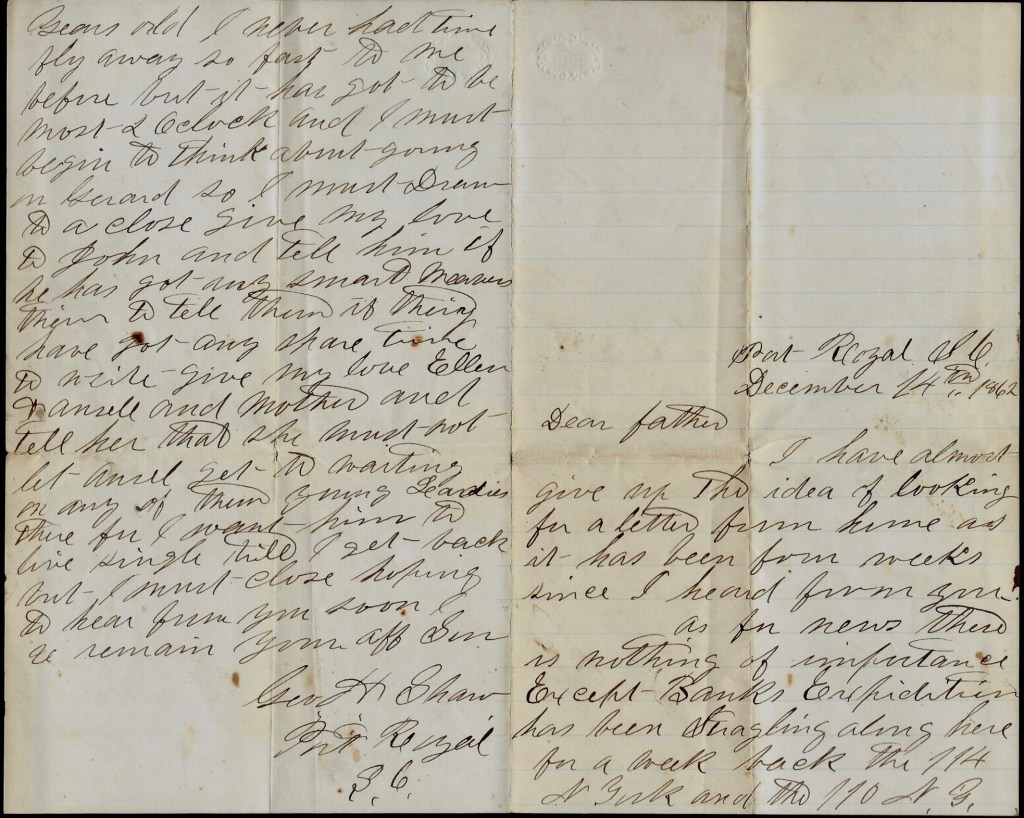 Port Royal S C
December 14th 1862
Dear father
I have almost
give up the idea of looking
for a letter from home as
it has been four weeks
since I heard from you.
as for news there
is nothing of importance
Except Banks Expidition
has been Stragling along here
for a week back the 114
N York and the 110 N. Y.
Years old I never had time
fly away so fast to me
before but it has got to be
most 2 Oclock and I must
begin to think about going
on Guard so I must Draw
to a close give my love
to John and tell him if
he has got any smart weavers
to tell them if they
have got any spare time
to write give my love Ellen
& ansell and mother and
tell her that she must not
let Ansel get to waiting
on any of them young Leadies
there for I want him to
live single till I get back
but I must close hoping
to hear from you soon I
remain your aff Son
Geo H Shaw
Port Royal
S. C.